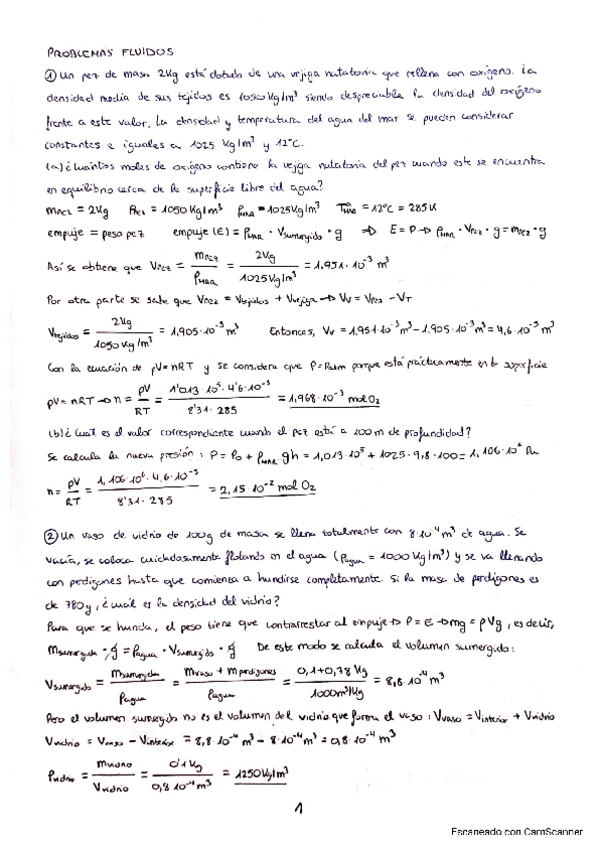 PROBLEMAS FLUIDOS
① Un pez de masa 2Kg está dotado de una vejiga natatoria que rellena con oxígeno. La
densidad media de sus tejidos es 1050 Kg/m³ siendo despreciable la densidad del oxígeno
frente a este valor. La densidad y temperatura del agua del mar se pueden considerar
constantes e iguales a 1025 Kg/m³ y 12°C.
(a) ¿Cuántos moles de oxígeno contiene la vejiga natatoria del pez cuando este se encuentra
en equilibrio cerca de la superficie libre del agua?
mPEZ = 2Kg ρPEZ = 1050 Kg/m³ ρMAR = 1025 Kg/m³ TMAR = 12°C = 285K
empuje = peso pez empuje (E) = ρMAR · Vsumergido · g ⇒ E = P → ρMAR · VPEZ · g = mPEZ · g
Así se obtiene que VPEZ = mPEZ / ρMAR = 2Kg / 1025 Kg/m³ = 1,951·10⁻³ m³
Por otra parte se sabe que VPEZ = Vtejidos + Vvejiga → VV = VPEZ - VT
Vtejidos = 2Kg / 1050 Kg/m³ = 1,905·10⁻³ m³ Entonces, VV = 1,951·10⁻³ m³ - 1,905·10⁻³ m³ = 4,6·10⁻⁵ m³
Con la ecuación de pV = nRT y se considera que P = Patm porque está prácticamente en la superficie
pV = nRT → n = pV / RT = 1'013·10⁵ · 4'6·10⁻⁵ / 8'31 · 285 = 1,968·10⁻³ mol O₂
(b) ¿Cuál es el valor correspondiente cuando el pez está a 100m de profundidad?
Se calcula la nueva presión: P = P₀ + ρMAR gh = 1,013·10⁵ + 1025 · 9,8 · 100 = 1,106·10⁶ Pa
n = pV / RT = 1,106·10⁶ · 4,6·10⁻⁵ / 8'31 · 285 = 2,15·10⁻² mol O₂
② Un vaso de vidrio de 100g de masa se llena totalmente con 8·10⁻⁴ m³ de agua. Se
vacía, se coloca cuidadosamente flotando en el agua (ρagua = 1000 Kg/m³) y se va llenando
con perdigones hasta que comienza a hundirse completamente. Si la masa de perdigones es
de 780g, ¿cuál es la densidad del vidrio?
Para que se hunda, el peso tiene que contrarrestar al empuje → P = E → mg = ρVg, es decir,
Msumergida · g = ρagua · Vsumergido · g De este modo se calcula el volumen sumergido:
Vsumergido = Msumergida / ρagua = Mvaso + Mperdigones / ρagua = 0,1+0,78 Kg / 1000 m³/Kg = 8,8·10⁻⁴ m³
Pero el volumen sumergido no es el volumen del vidrio que forma el vaso: Vvaso = Vinterior + Vvidrio
Vvidrio = Vvaso - Vinterior = 8,8·10⁻⁴ m³ - 8·10⁻⁴ m³ = 0,8·10⁻⁴ m³
ρvidrio = Mvidrio / Vvidrio = 0'1Kg / 0,8·10⁻⁴ m³ = 1250 Kg/m³
1
Escaneado con CamScanner